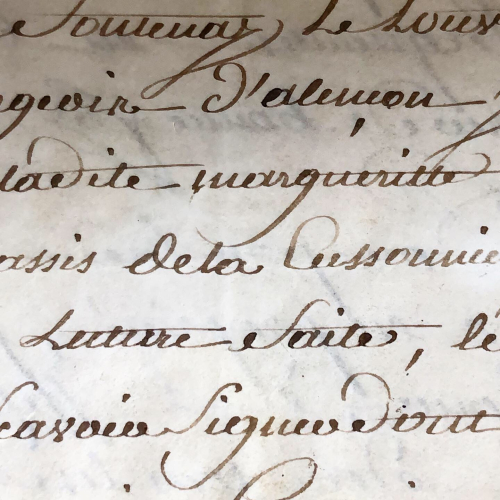 e Fontenay Le Louv
geoir d'alençon
ladite margueritte
assis de la Cussonnie
Lecture faite, le
scavoir signer dont